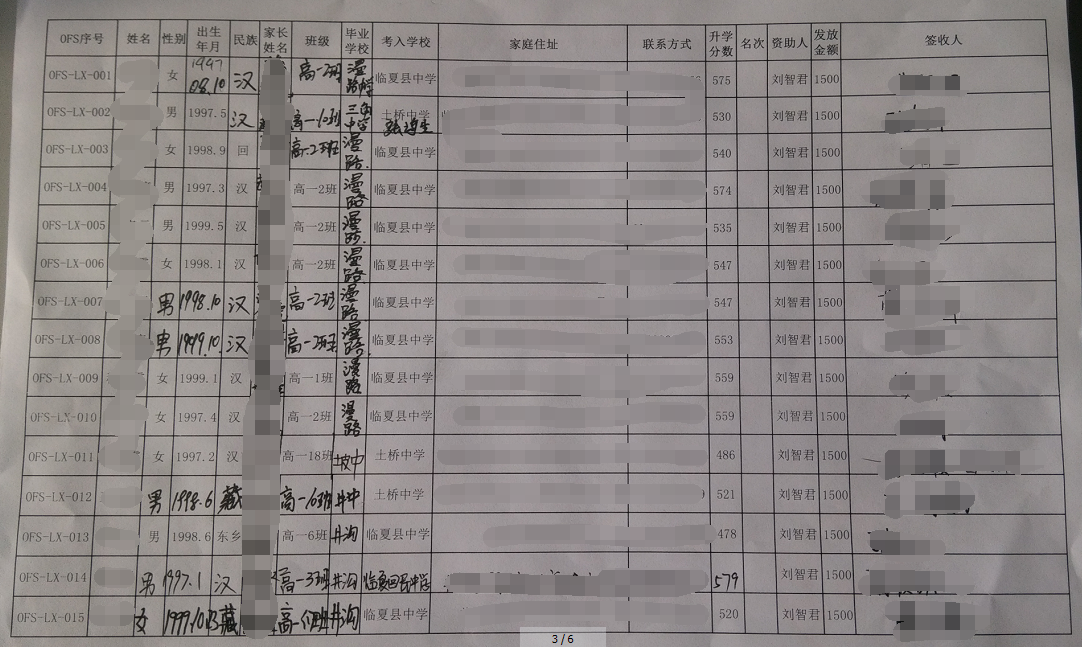 OFS序号 姓名 性别 出生年月 民族 家长姓名 班级 毕业学校 考入学校 家庭住址 联系方式 升学分数 名次 资助人 发放金额 签收人
OFS-LX-001 女 1997 08.10 汉 高一2班 漫路 临夏县中学 575 刘智君 1500
OFS-LX-002 男 1997.5 汉 高一10班 三角中学 土桥中学 530 刘智君 1500
OFS-LX-003 女 1998.9 回 高一2班 漫路 临夏县中学 540 刘智君 1500
OFS-LX-004 男 1997.3 汉 高一2班 漫路 临夏县中学 574 刘智君 1500
OFS-LX-005 男 1999.5 汉 高一2班 漫路 临夏县中学 535 刘智君 1500
OFS-LX-006 女 1998.1 汉 高一2班 漫路 临夏县中学 547 刘智君 1500
OFS-LX-007 男 1998.10 汉 高一2班 漫路 临夏县中学 547 刘智君 1500
OFS-LX-008 男 1999.10 汉 高一2班 漫路 临夏县中学 553 刘智君 1500
OFS-LX-009 女 1999.1 汉 高一1班 漫路 临夏县中学 559 刘智君 1500
OFS-LX-010 女 1997.4 汉 高一2班 漫路 临夏县中学 559 刘智君 1500
OFS-LX-011 女 1997.2 汉 高一18班 坡中 土桥中学 486 刘智君 1500
OFS-LX-012 男 1998.6 藏 高一10班 井中 土桥中学 9 521 刘智君 1500
OFS-LX-013 男 1998.6 东乡 高一6班 井沟 临夏县中学 478 刘智君 1500
OFS-LX-014 男 1997.1 汉 高一3班 井沟 临夏回民中学 579 刘智君 1500
OFS-LX-015 女 1999.10 藏 高一 班 井沟 临夏县中学 520 刘智君 1500
3/6